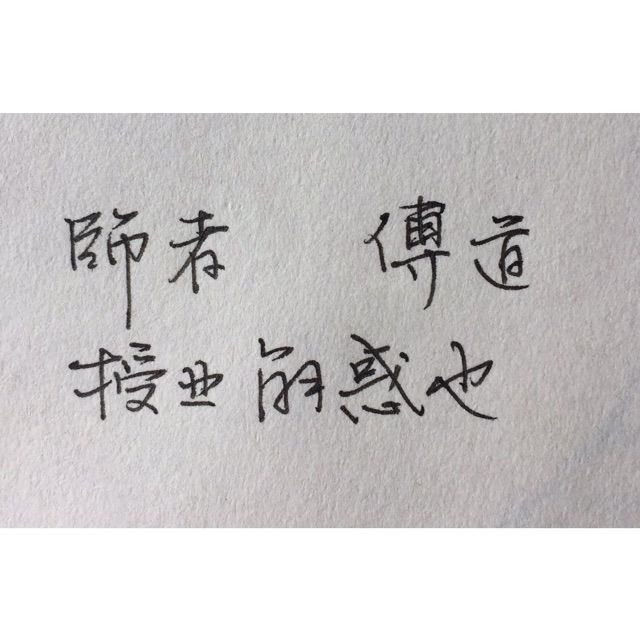 師者 傳道
授业解惑也